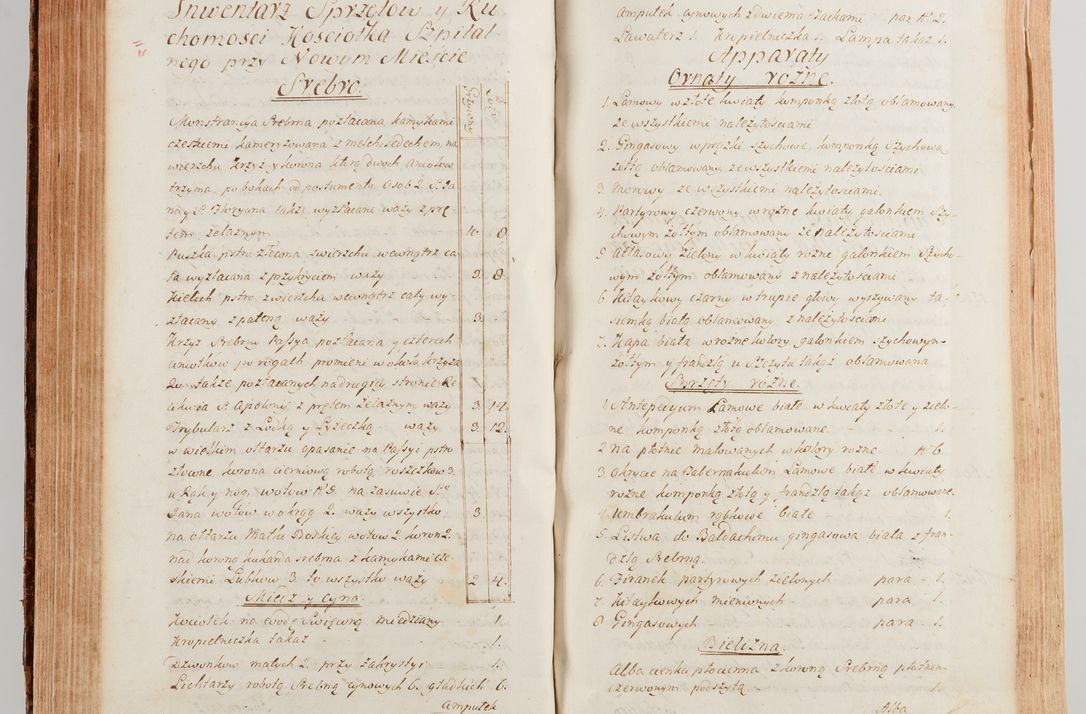 Inwentarz Sprzętow y Ru
chomosci Kosciołka Szpital
nego przy Nowym Mieście
Srebro.
Grzywny Łóty
Monstrancya Srebrna pozłacana kamykami
czeskiemi kameryzowana z melchisedechem, na
wierzchu krzyż y korona którą dwoch aniołow
trzyma, po bokach od postumentu Osob 2. S. Ja
na y S. Floryana także wyzłacane waży z prę
tem żelaznym 10. 8
Puszka pstro złcona zwierzchu, wewnątrz ca
ła wyzłacana z przykryciem waży 2. 8
Kielich pstro zwierzchu wewnątrz cały wy
złacany z pateną waży 3. -
Krzyż Srebrny Passya pozłacana y czterech
aniołkow po rogach promieni w około krzyża
także pozłacanych na drugiey stronie Re
likwia S. Apolonij z prętem żelaznym waży 3 14.
Trybularz z Łodką y Łyżeczką waży 3 12.
w wielkim ołtarzu opasanie na Passyi pstro
złcone korona cierniową robotą roszczkow 3.
u Rąk y nóg, wotow N 9. na zasuwie S.
Jana wotow w okrąg 2. waży wszystko 3
na ołtarzu Matki Boskiey wotow 2. koron 2.
nad koroną kukarda srebrna z kamykami cze
skiemi Lubkow 3. to wszystko waży 2 4.
Miedź y Cyna.
Kociołek na wodę Swięconą miedziany 1.
Kropielniczka takaż - 1.
Dzwonkow małych 2. przy zakrystyi - 1.
Lichtarzy robotą Srebrną cynowych 6. gładkich 6.
Ampułek
Ampułek cynowych z dwiema tackami par N 2.
Lawaterz 1. Kropielniczka 1. Lampa takaż 1.
Apparaty
Ornaty rożne.
1. Lamowy w złote kwiaty komponką złotą oblamowany,
ze wszystkiemi należytosciami
2. Gingasowy w prążki szychowe, komponką szychową
żółtą oblamowany, ze wszystkiemi należytosciami
3 Morowy ze wszystkiemi należytosciami.
4. Partyrowy czerwony w rożne kwiaty galonkiem Szy-
chowym żołtym oblamowany ze należytosciami
5 Atłasowy zielony w kwiaty rożne galonkiem Szycho-
wym żołtym oblamowany z należytosciami
6 Kitaykowy czarny w trupie głowy wyszywany ta-
siemką białą oblamowany z należytosciami
7. Kapa biała w rożne kolory galonkiem Szychowym
żołtym y frandzlą u Szczytu takąż oblamowana
Sprzęty rożne.
1. Antepedyum Lamowe białe w kwiaty złote y zielo-
ne komponką złotą oblamowane. - 1.
2 na płotnie malowanych w kolory rożne - N 6.
3. okrycie na Tabernakulum Lamowe białe w kwiaty
rożne komponką złotą y frandzlą takąż oblamowane.
4. Umbrakulum rąbkowe białe - 1.
5. Listwa do Baldachimu gingasowa biała z fran-
dzlą Srebrną.
6. Firanek partyrowych zielonych para - 1.
7. Kitaykowych mienionych - para - 1.
8 Gingasowych - para - 1.
Bielizna.
Alba cienka płocienna z koroną Srebrną płotnem
czerwonym podszytą - 1.
Alba